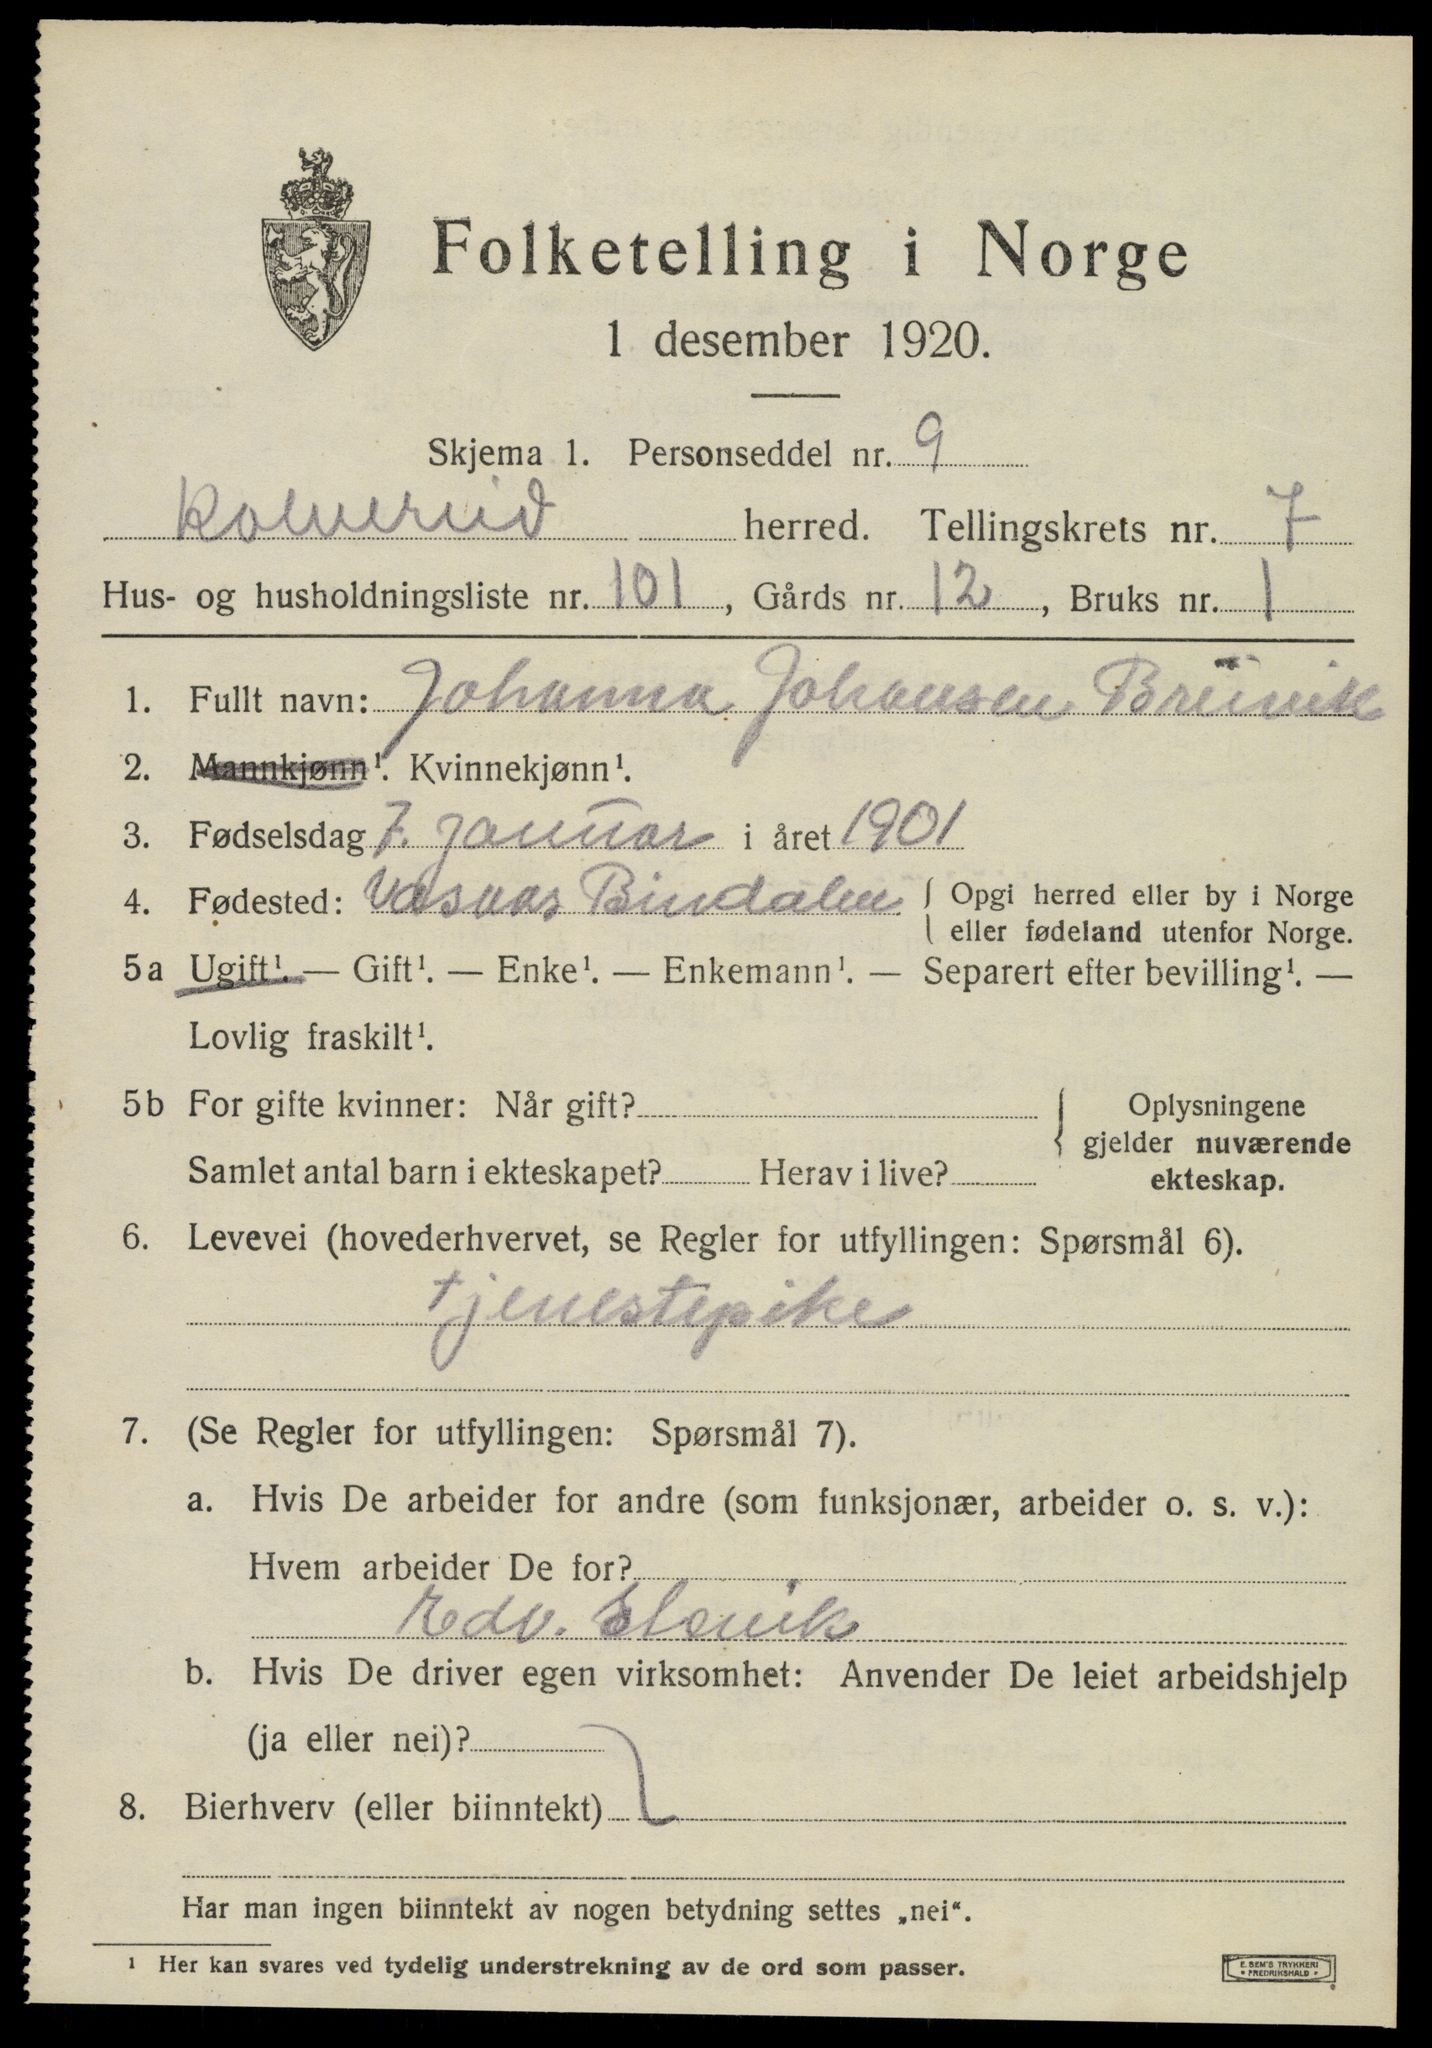 Folketelling i Norge
1 desember 1920.
Skjema 1. Personseddel nr. 9
Kolvereid herred. Tellingskrets nr. 7
Hus- og husholdningsliste nr. 101, Gårds nr. 12, Bruks nr. 1
1. Fullt navn: Johanna Johansen Breivik
2. Mannkjønn¹. Kvinnekjønn¹.
3. Fødselsdag 7. januar i året 1901
4. Fødested: Vasaas Bindalen { Opgi herred eller by i Norge
eller fødeland utenfor Norge.
5a Ugift¹. — Gift¹. — Enke¹. — Enkemann¹. — Separert efter bevilling¹. —
Lovlig fraskilt¹.
5b For gifte kvinner: Når gift? { Oplysningene
gjelder nuværende
Samlet antal barn i ekteskapet? Herav i live? ekteskap.
6. Levevei (hovederhvervet, se Regler for utfyllingen: Spørsmål 6).
tjenestepike
7. (Se Regler for utfyllingen: Spørsmål 7).
a. Hvis De arbeider for andre (som funksjonær, arbeider o. s. v.):
Hvem arbeider De for?
Edv.
b. Hvis De driver egen virksomhet: Anvender De leiet arbeidshjelp
(ja eller nei)?
8. Bierhverv (eller biinntekt)
Har man ingen biinntekt av nogen betydning settes „nei“.
¹ Her kan svares ved tydelig understrekning av de ord som passer.
E. SEM'S TRYKKERI
• FREDRIKSHALD •